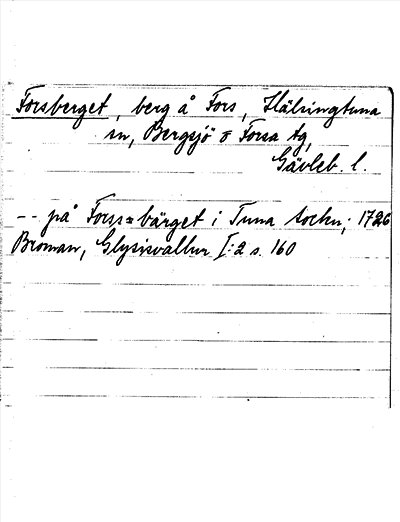 Forsberget, berg å Fors, Hälsingtuna
sn, Bergsjö o Forsa tg,
Gävleb. l.
-- på Forss=bärget i Tuna sochn; 1726
Broman, Glysisvallur I:2 s. 160